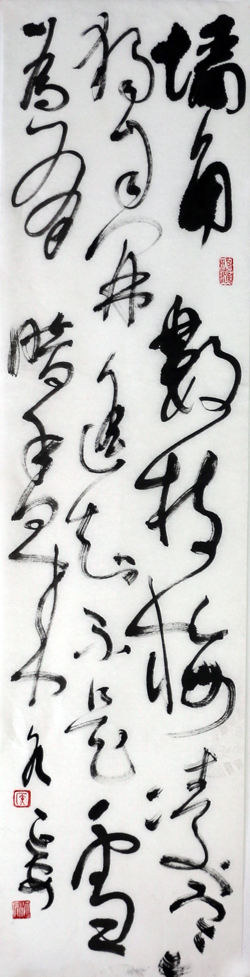 墙角數枝梅凌寒
獨自開遥知不是雪
為有暗香来